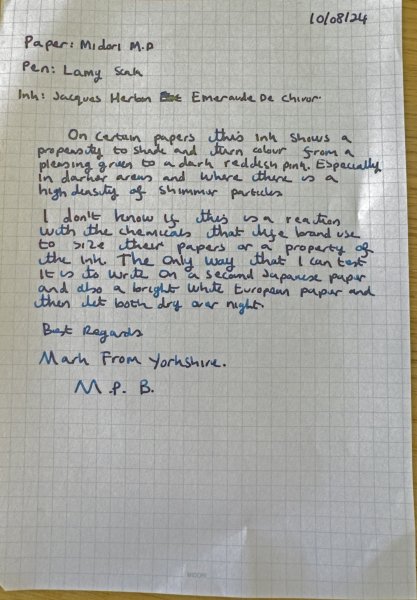 10/08/24
Paper: Midori M.D
Pen: Lamy
Ink: Jacques Herbin Emeraude De Chivor.
On Certain papers this ink shows a
propensity to shade and turn colour from a
pleasing green to a dark reddish pink. Especially
in darker areas and where there is a
high density of shimmer particles
I don't know if this is a reaction
with the chemicals that brand use
to size their papers or a property of
the ink. The only way that I can test
it is to write on a second Japanese paper
and also a bright white European paper and
then let both dry over night.
Best Regards
Mark From Yorkshire.
M.P.B.
MIDORI